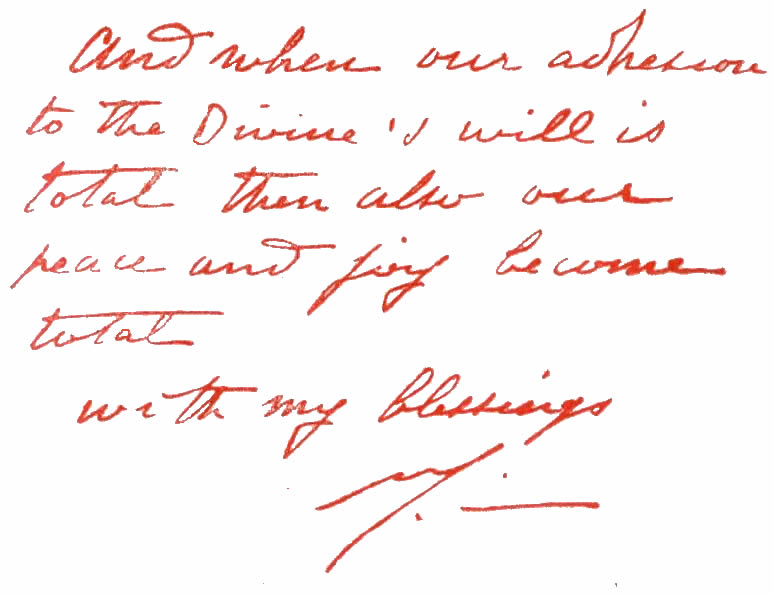 And when our adhesion
to the Divine's will is
total then also our
peace and joy become
total
with my blessings